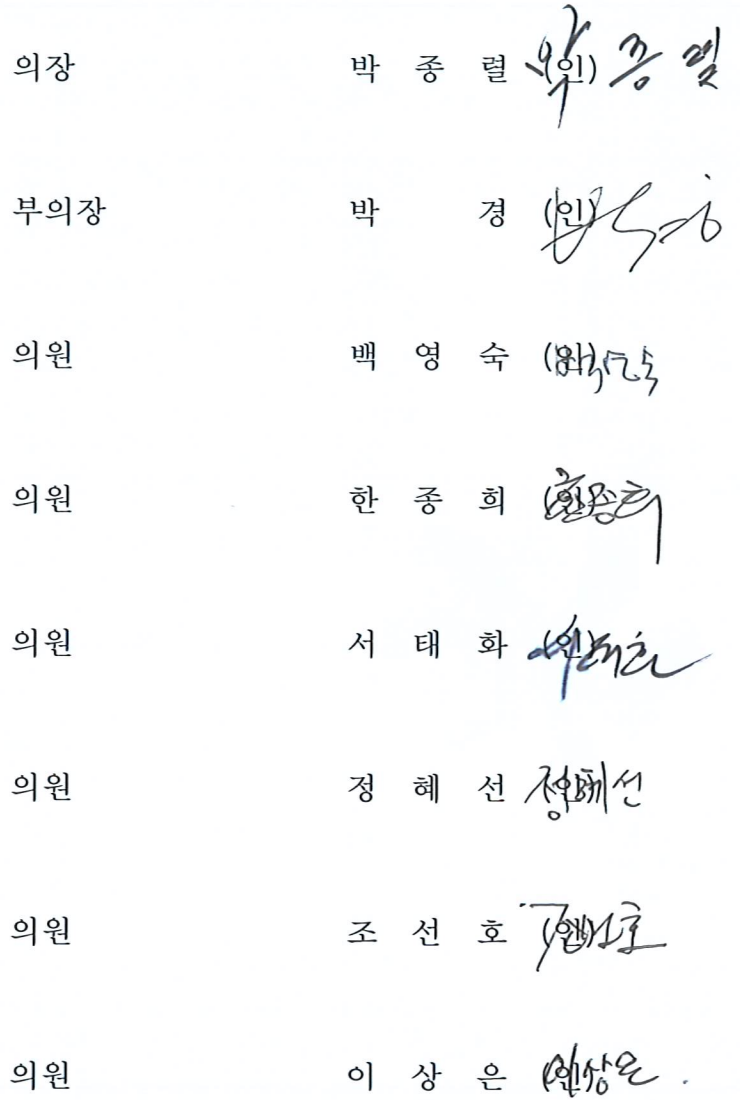 의장 박 종 렬 (인)
부의장 박 경 (인)
의원 백 영 숙 (인)
의원 한 종 희 (인) 한종희
의원 서 태 화 (인) 서태화
의원 정 혜 선 (인) 정혜선
의원 조 선 호 (인) 조선호
의원 이 상 은 (인) 이상은